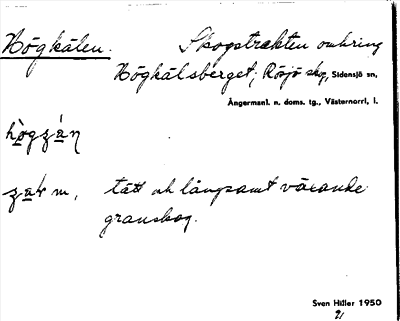 Högkälen. Skogstrakten omkring
Högkälsberget, Rösjö skog, Sidensjö sn,
Ångermanl. n. doms. tg., Västernorrl. l.
m, tätt och långsamt växande
granskog.
Sven Hiller 1950